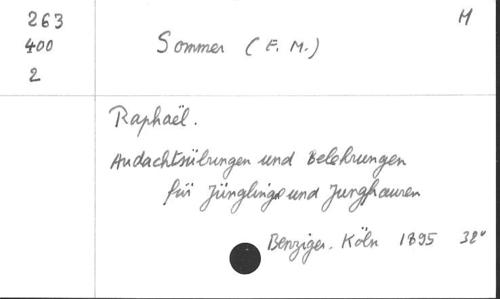 263 M
400 Sommer (F. M.)
2
Raphaël.
Andachtsübungen und Belehrungen
für Jünglinge und Jungfrauen
Benziger. Köln 1895 32°